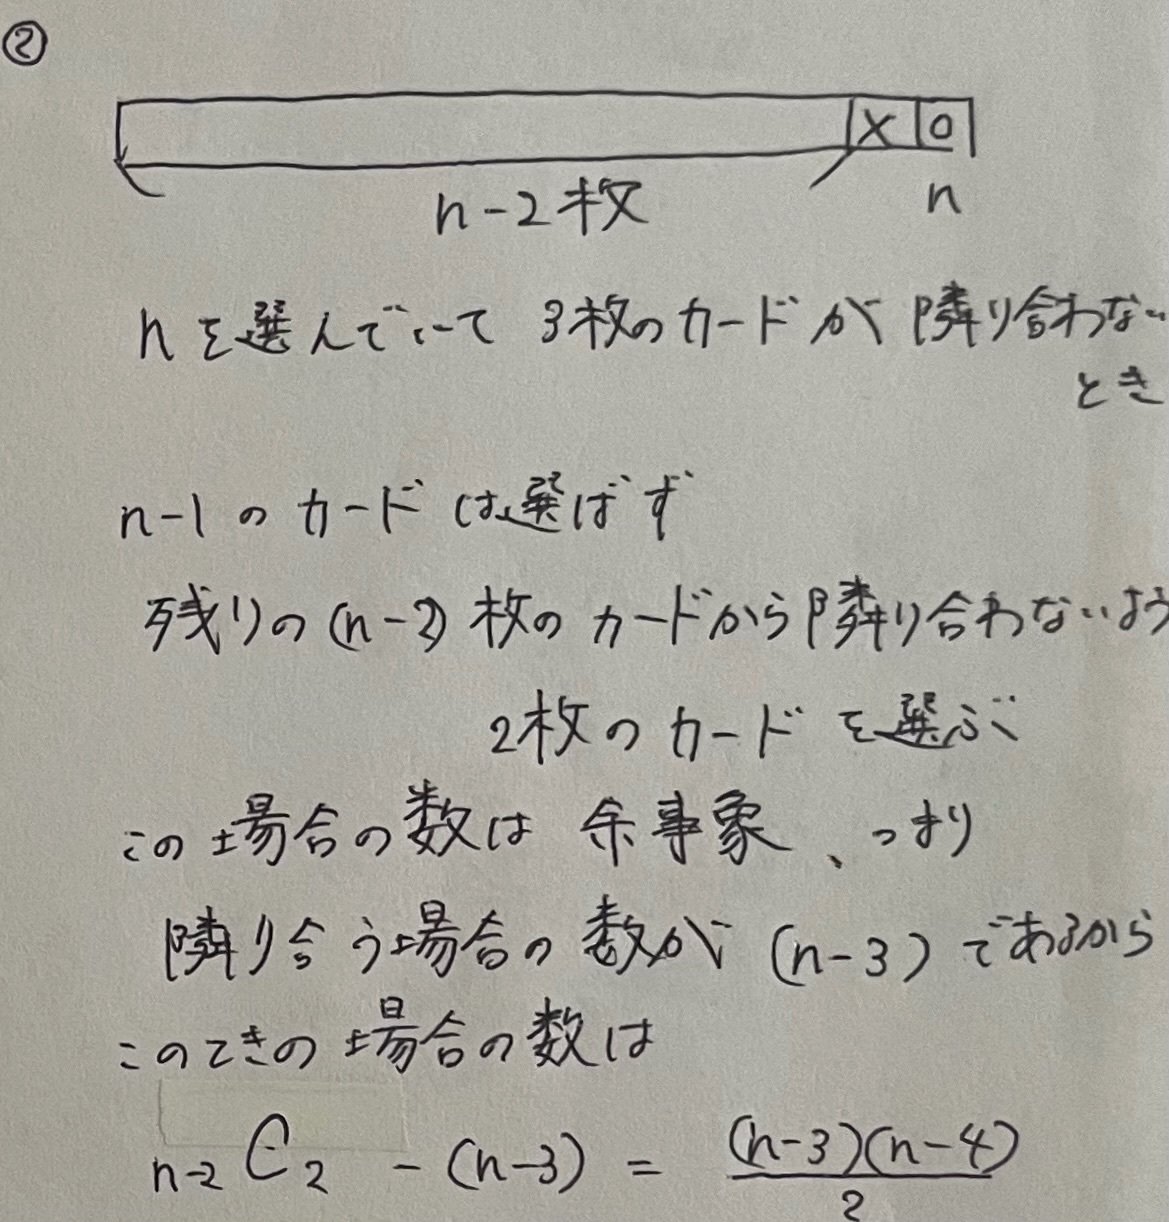 ②
× 0
n-2枚 n
nを選んでいて 3枚のカードが隣り合わない
とき
n-1のカードは選ばず
残りの(n-2)枚のカードから隣り合わないよう
2枚のカードを選ぶ
この場合の数は余事象、つまり
隣り合う場合の数が(n-3)であるから
このときの場合の数は
n-2C2 - (n-3) = (n-3)(n-4)/2